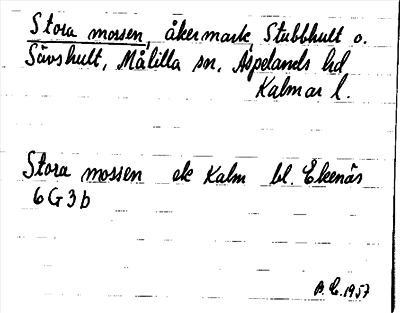 Stora mossen, åkermark, Stubbhult o.
Sävshult, Målilla sn, Aspelands hd
Kalmar l.
Stora mossen ek Kalm bl. Ekenäs
6G3b
B.E. 1957